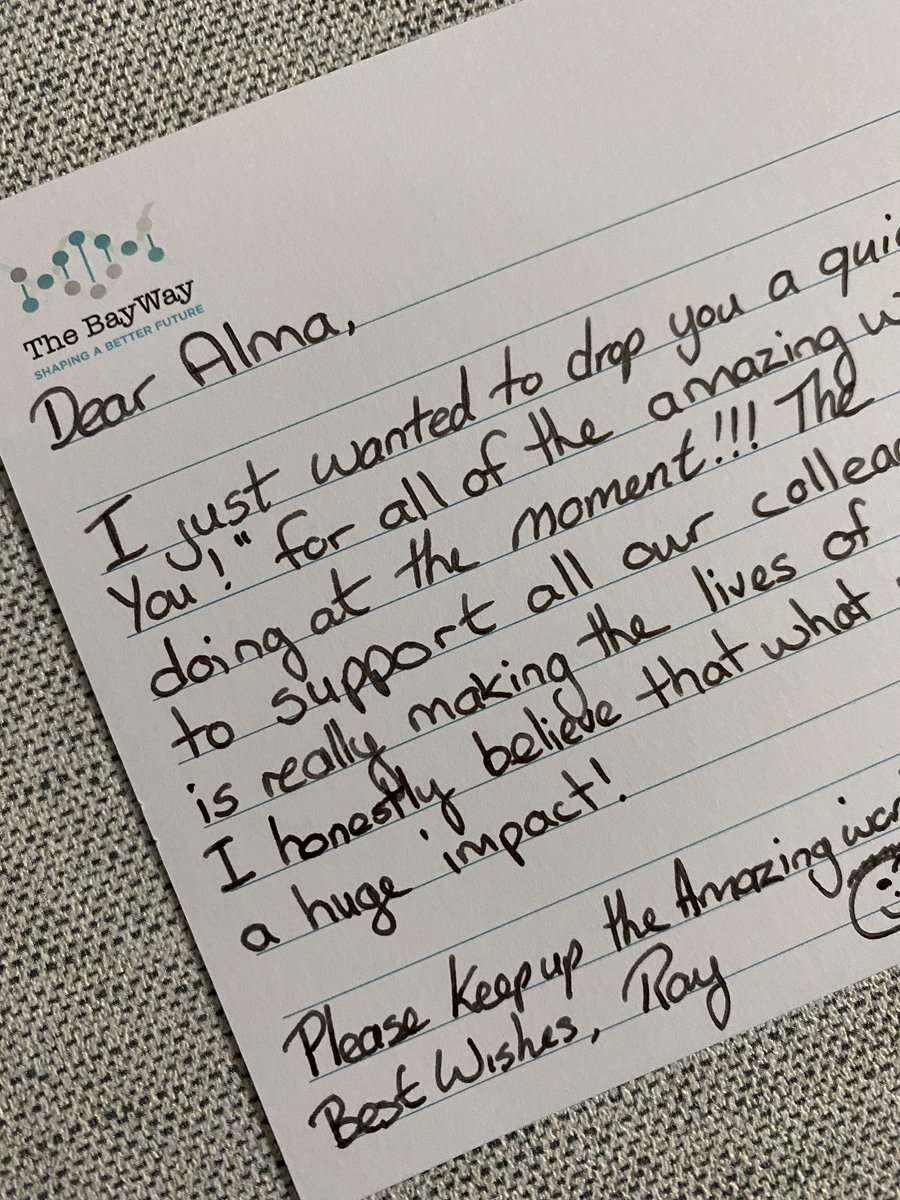 The BayWay
SHAPING A BETTER FUTURE
Dear Alma,
I just wanted to drop you a
You!" for all of the amazing
doing at the moment!!! The
to support all our
is really making the lives of
I honestly believe that what
a huge impact!
Please Keep up the Amazing
Best Wishes, Ray